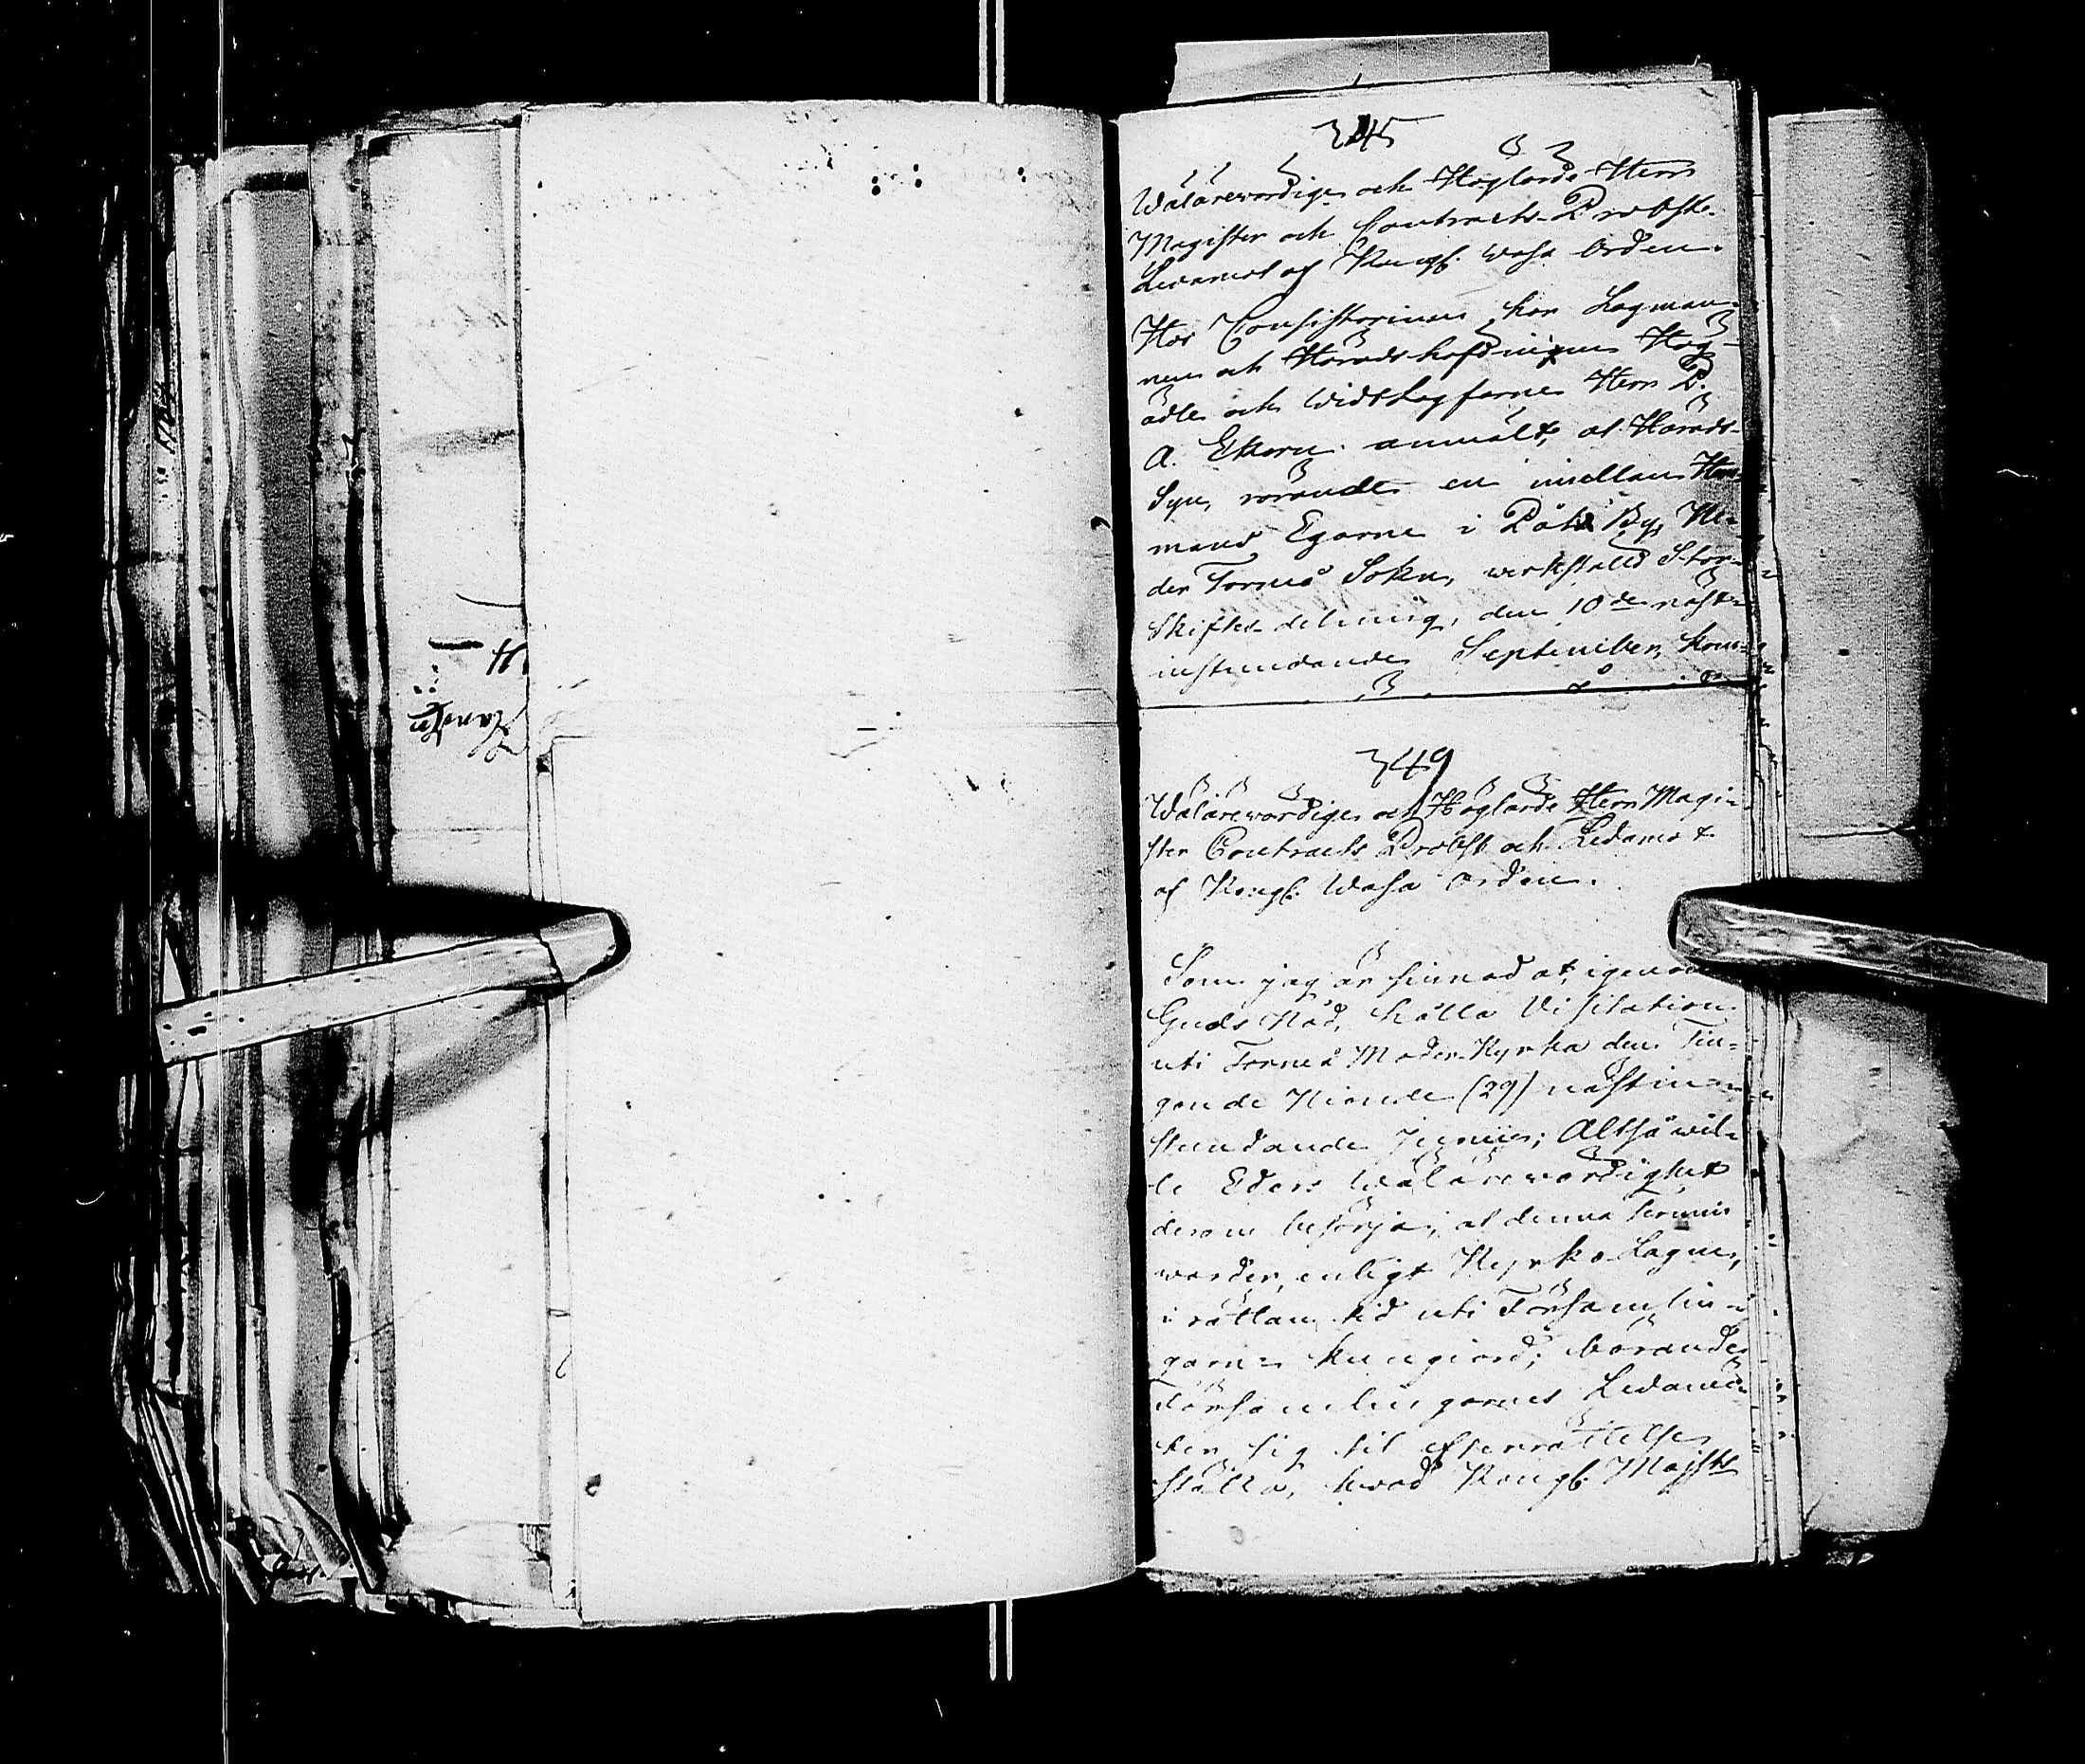 345
Wälärevördige och Höglärde Herr
Magister och Contracts-Probst.
Ledamot af Kongl. Wasa Orden.
Hos Consistorium har Lagman-
nen och Häradshöfdingen Hög-
ädle och Widtlagfarne Herr P.
A. Ekorn anmält, at Härads-
Syn, rörande en imellan Hem-
mans Egarne i By, Ne-
der Torneå Sokn, werkstäld Stor-
Skiftes-delning, den 10de näst-
instundande September, kom-
349
Wälärevördige och Höglärde Herr Magi-
ster Contracts Probst och Ledamot
af Kongl. Wasa Orden.
Som jag är sinnad at, igenom
Guds Nåd, hålla Visitation
uti Torneå Moder-Kyrka den Tiu-
gonde Nionde (29) nästin-
stundande Junii; Altså wil-
le Eders Wälärevördighet
derom besörja, at denna Termin
warder, enligt Kyrko-Lagen,
i rättan tid uti Församlin-
garne kungiord; börandes
Församlingarnes Ledamö-
ter sig til efterrättelse
ställa, hwad Kongl. Majsts